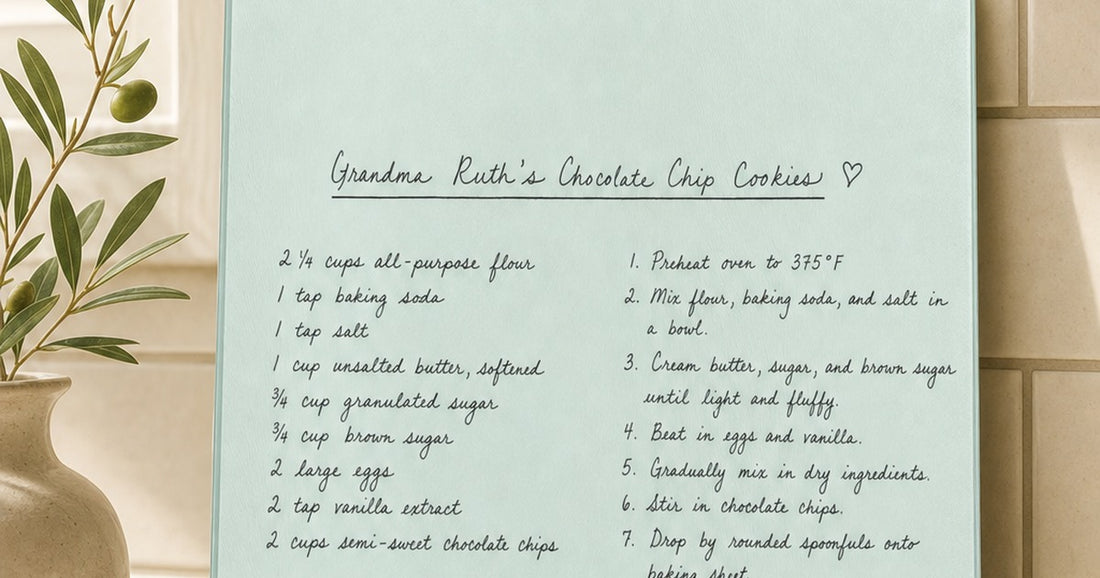 Grandma Ruth's Chocolate Chip Cookies ♡
2 ¼ cups all-purpose flour
1 tap baking soda
1 tap salt
1 cup unsalted butter, softened
¾ cup granulated sugar
¾ cup brown sugar
2 large eggs
2 tap vanilla extract
2 cups semi-sweet chocolate chips
1. Preheat oven to 375°F
2. Mix flour, baking soda, and salt in
a bowl.
3. Cream butter, sugar, and brown sugar
until light and fluffy.
4. Beat in eggs and vanilla.
5. Gradually mix in dry ingredients.
6. Stir in chocolate chips.
7. Drop by rounded spoonfuls onto
baking sheet